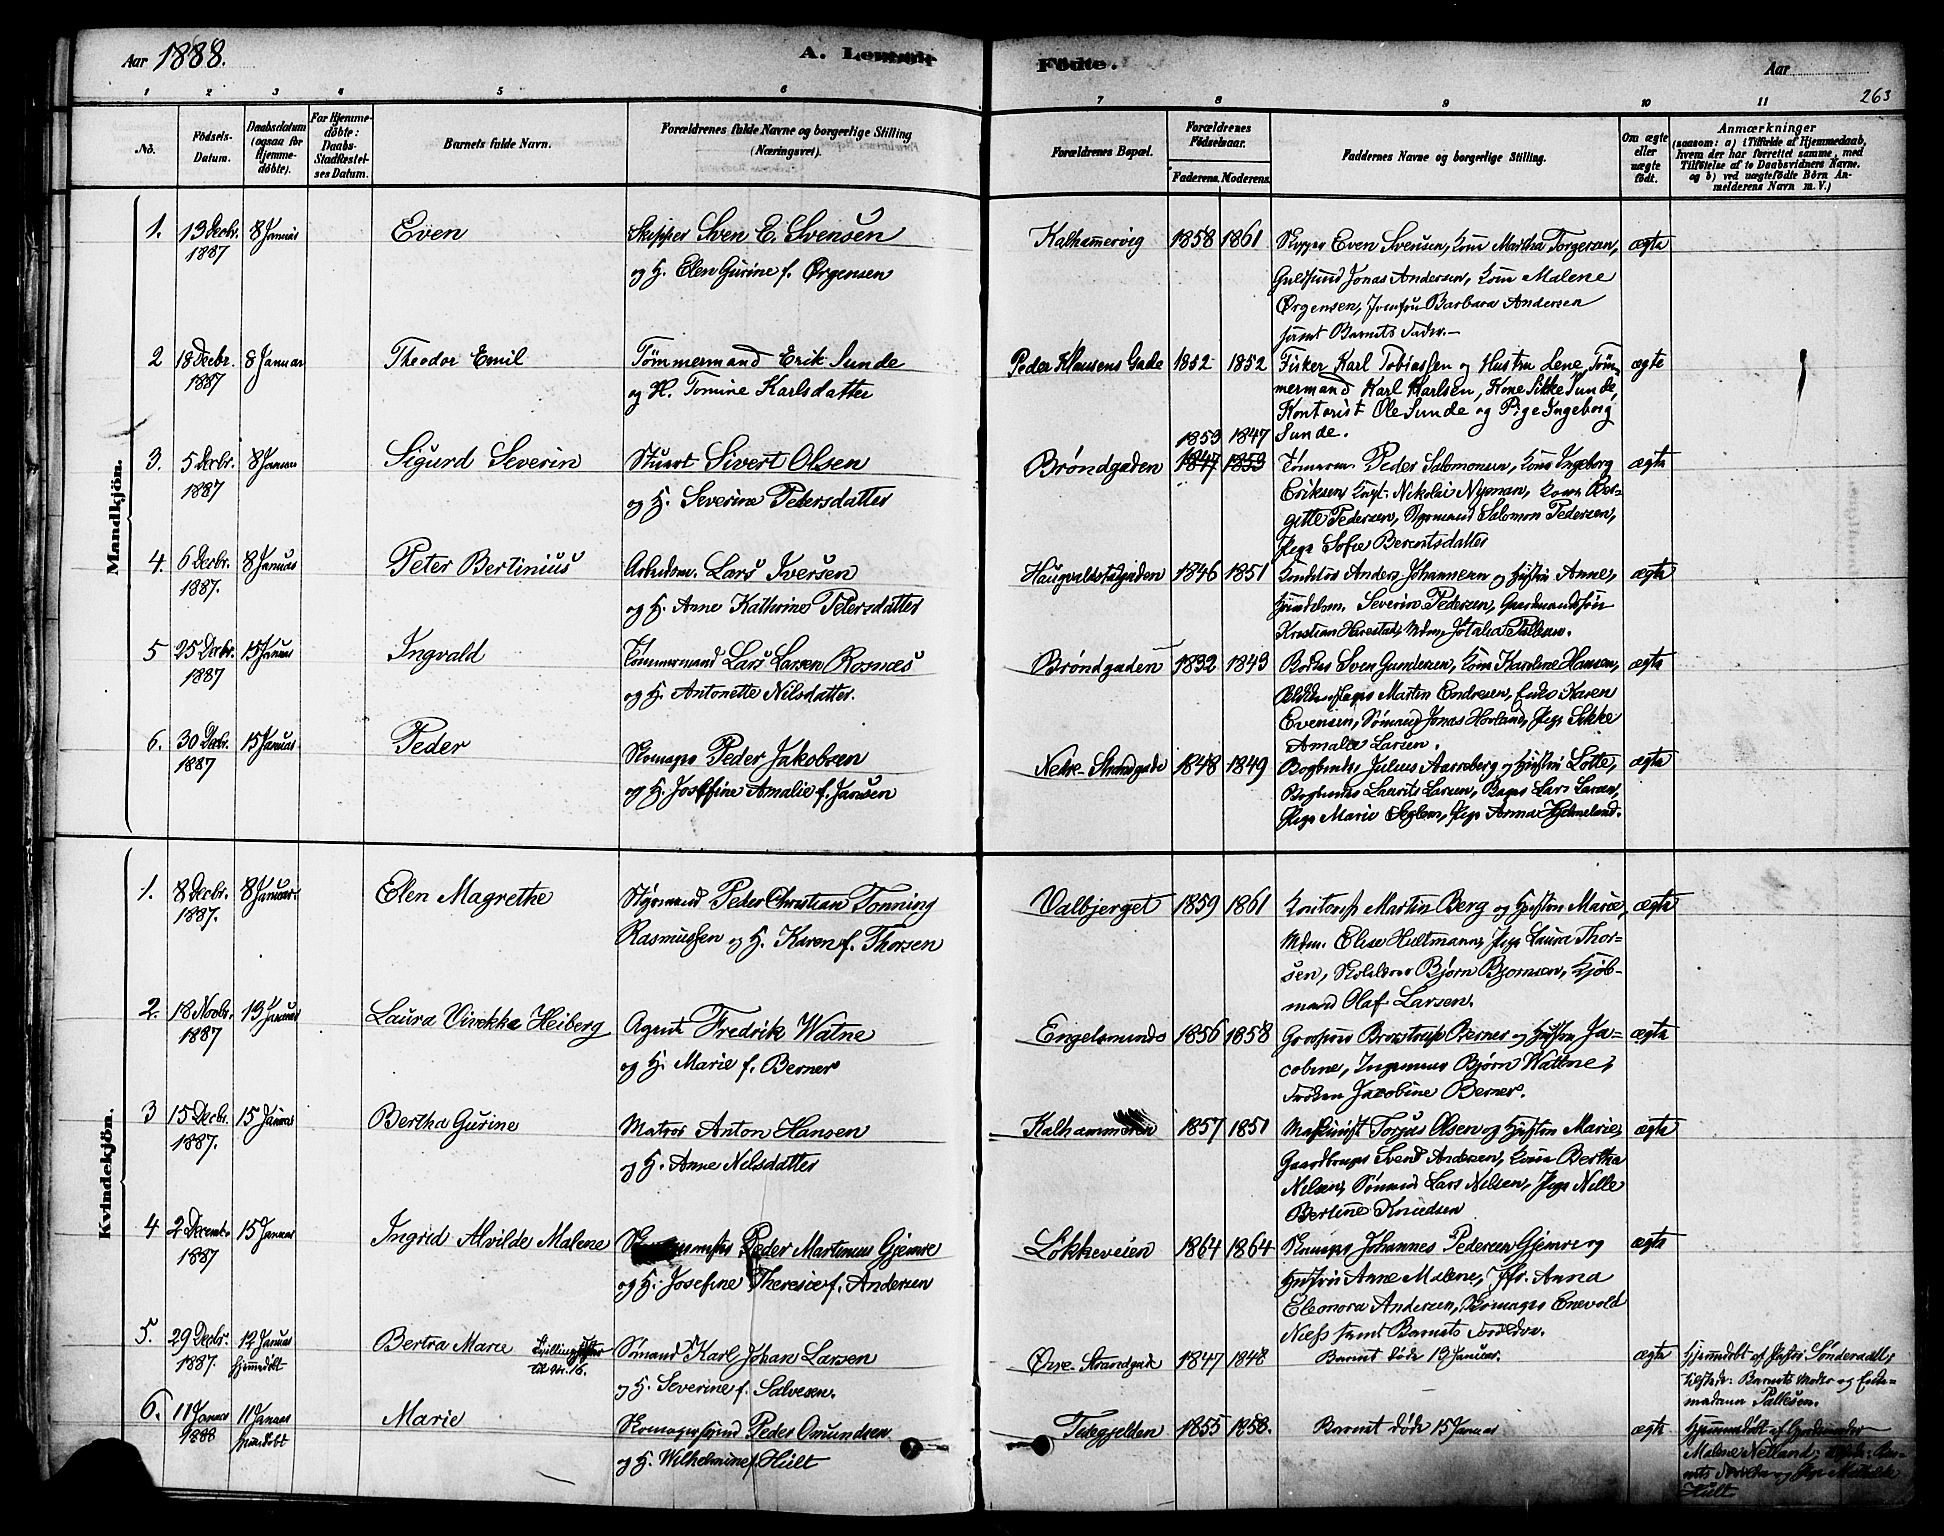 Aar 1888.
A. Levende
Födte.
Aar
263
1 2 3 4 5 6 7 8 9 10 11
No.
Födsels-Datum.
Daabsdatum (ogsaa for Hjemmedöbte).
For Hjemmedöbte: Daabs-Stadfæstelses Datum.
Barnets fulde Navn.
Forældrenes fulde Navne og borgerlige Stilling (Næringsvei).
Forældrenes Bopæl.
Forældrenes Födselsaar.
Faderens. Moderens.
Faddernes Navne og borgerlige Stilling.
Om ægte eller uægte födt.
Anmærkninger
(saasom: a) i Tilfælde af Hjemmedaab,
hvem der har forrettet samme, med
Tilföielse af to Daabsvidners Navne.
og b) ved uægtefödte Börn Anmelderens Navn m. V.)
Mandkjön.
1. 13 Decbr. 1887 8 Januar
Even
Skipper Sven E. Svensen
og H. Elen Gurine f. Ørgensen
Kalhammervig 1858 1861
Even Svensen, Kone Martha Torgersen,
Guldsmed Jonas Andersen, Kone Malene
Ørgensen, Jomfru Barbara Andersen
samt Barnets Fader.
ægte
2 18 Decbr. 1887 8 Januar
Theodor Emil
Tömmermand Erik Sunde
og H. Tomine Karlsdatter
Peder Klausens Gade 1852 1852
Fisker Karl Tobiassen og Hustru Lene, Töm-
mermand Karl Karlsen, Kone Sikke Sunde,
Kontorist Ole Sunde og Pige Ingeborg
Sunde.
ægte
3. 5 Decbr. 1887 8 Januar
Sigurd Severin
Stuert Sivert Olsen
og H. Severine Pedersdatter
Bröndgaden 1853 1847
1847 1853
Peder Salomonsen, Kone Ingeborg
Eriksen, Nikolai Nyman, Kone Ber-
gitte Pedersen, Salomon Pedersen,
Pige Sofie Berentsdatter
ægte
4. 6 Decbr. 1887. 8 Januar
Peter Bertinius
Arbeidsm. Lars Iversen
og H. Anne Kathrine Petersdatter
Haugvaldstadgaden 1846 1851
Konditor Anders Johannesen og Hustru Anne,
Severin Pedersen, Gaardmandssön
Kristian Harestad, Mdm. Jotalia Pallesen.
ægte
5 25 Decbr. 1887 15 Januar
Ingvald
Tömmermand Lars Larsen Rosnæs
og H. Antonette Nilsdatter.
Bröndgaden 1832 1843
Sven Gundersen, Kone Karolene Hansen,
Martin Endresen, Enke Karen
Evensen, Sömand Jonas Hovland, Pige Sikke
Amalie Larsen.
ægte
6. 30 Decbr. 1887 15 Januar
Peder
Skomager Peder Jakobsen
og H. Josefine Amalie f. Jansen
Nedre Strandgade 1848 1849
Bogbinder Julius Aarreberg og Hustru Lotte,
Bogbinder Laurits Larsen, Bager Lars Larsen,
Pige Marie Seglem, Pige Anna Hjelmeland.
ægte
Kvindekjön.
1. 8 Decbr. 1887. 8 Januar.
Elen Magrethe
Styrmand Peder Christian Tonning
Rasmussen og H. Karen f. Thorsen
Valbjerget 1859 1861
Kontorist Martin Berg og Hustru Marie,
Mdm. Elise Hultmann, Pige Laura Thor-
sen, Skolelærer Björn Bjornsen, Kjöb-
mand Olaf Larsen.
ægte
2. 18 Novbr. 1887 13 Januar
Laura Vivekka Heiberg
Agent Fredrik Watne
og H. Marie f. Berner
Engelsminde 1856 1858
Berner og Hustru Ja-
cobine, Ingeniør Björn Wattne,
Fröken Jacobine Berner.
ægte
3 15 Decbr. 1887. 15 Januar
Bertha Gurine
Matros Anton Hansen
og H. Anne Nilsdatter
Kalhammeren 1857 1851
Maskinist Torjus Olsen og Hustru Marie,
Gaardbruger Svend Andersen, Kone Bertha
Nilsen, Sömand Lars Nilsen, Pige Nille
Bertine Knudsen
ægte
4 2 Decembr. 1887 15 Januar
Ingrid Alvilde Malene
Peder Martinius Gjemre
og H. Josefine Theresie f. Andersen
Lökkeveien 1864 1864
Skomager Johannes Pedersen Gjemre og
Hustru Anne Malene, Jfr. Anna
Eleonora Andersen, Enevold
Næss samt Barnets Forældre.
ægte
5. 29 Decbr. 1887. 12 Januar hjemmedøbt
Bertra Marie Tvillingsøster til Nr. 16.
Sömand Karl Johan Larsen
og H. Severine f. Salvesen.
Øvre Strandgade 1847 1848
Barnet döde 13 Januar.
ægte
Hjemmedøbt af Pastor Sønderaal,
tilstede: Barnets Moder og
madame Pallesen.
6. 11 Januar 1888 11 Januar hjemmedøbt
Marie
Skomagersvend Peder Omundsen
og H. Wilhelmine f. Hult
Tedegjelden 1855 1858.
Barnet döde 15 Januar
ægte
Hjemmedøbt af Gjordemoder
Malene Netland,
og Pige Mathilde
Hult